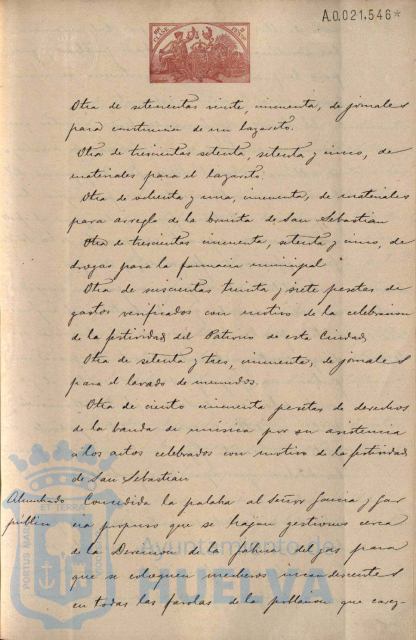 A.0.021,546*
Otra de setecientas veinte, cincuenta, de jornales
para construccion de un lazareto.
Otra de trescientas setenta, setenta y cinco, de
materiales para el lazareto.
Otra de ochenta y una, cincuenta, de materiales
para arreglo de la Ermita de San Sebastian
Otra de trescientas cincuenta, setenta y cinco, de
drogas para la farmacia municipal
Otra de doscientas treinta y siete pesetas de
gastos verificados con motivo de la celebracion
de la festividad del Patrono de esta Ciudad
Otra de setenta y tres, cincuenta, de jornales
para el lavado de menudos.
Otra de ciento cincuenta pesetas de derechos
de la banda de música por su asistencia
a los actos celebrados con motivo de la festividad
de San Sebastian
Alumbrado
público
Concedida la palabra al Señor Garcia y Gar
cia propuso que se hagan gestiones cerca
de la Direccion de la fabrica del gas para
que se coloquen mecheros incandescentes
en todas las farolas de la poblacion que carez-
Ayuntamiento de
HUELVA